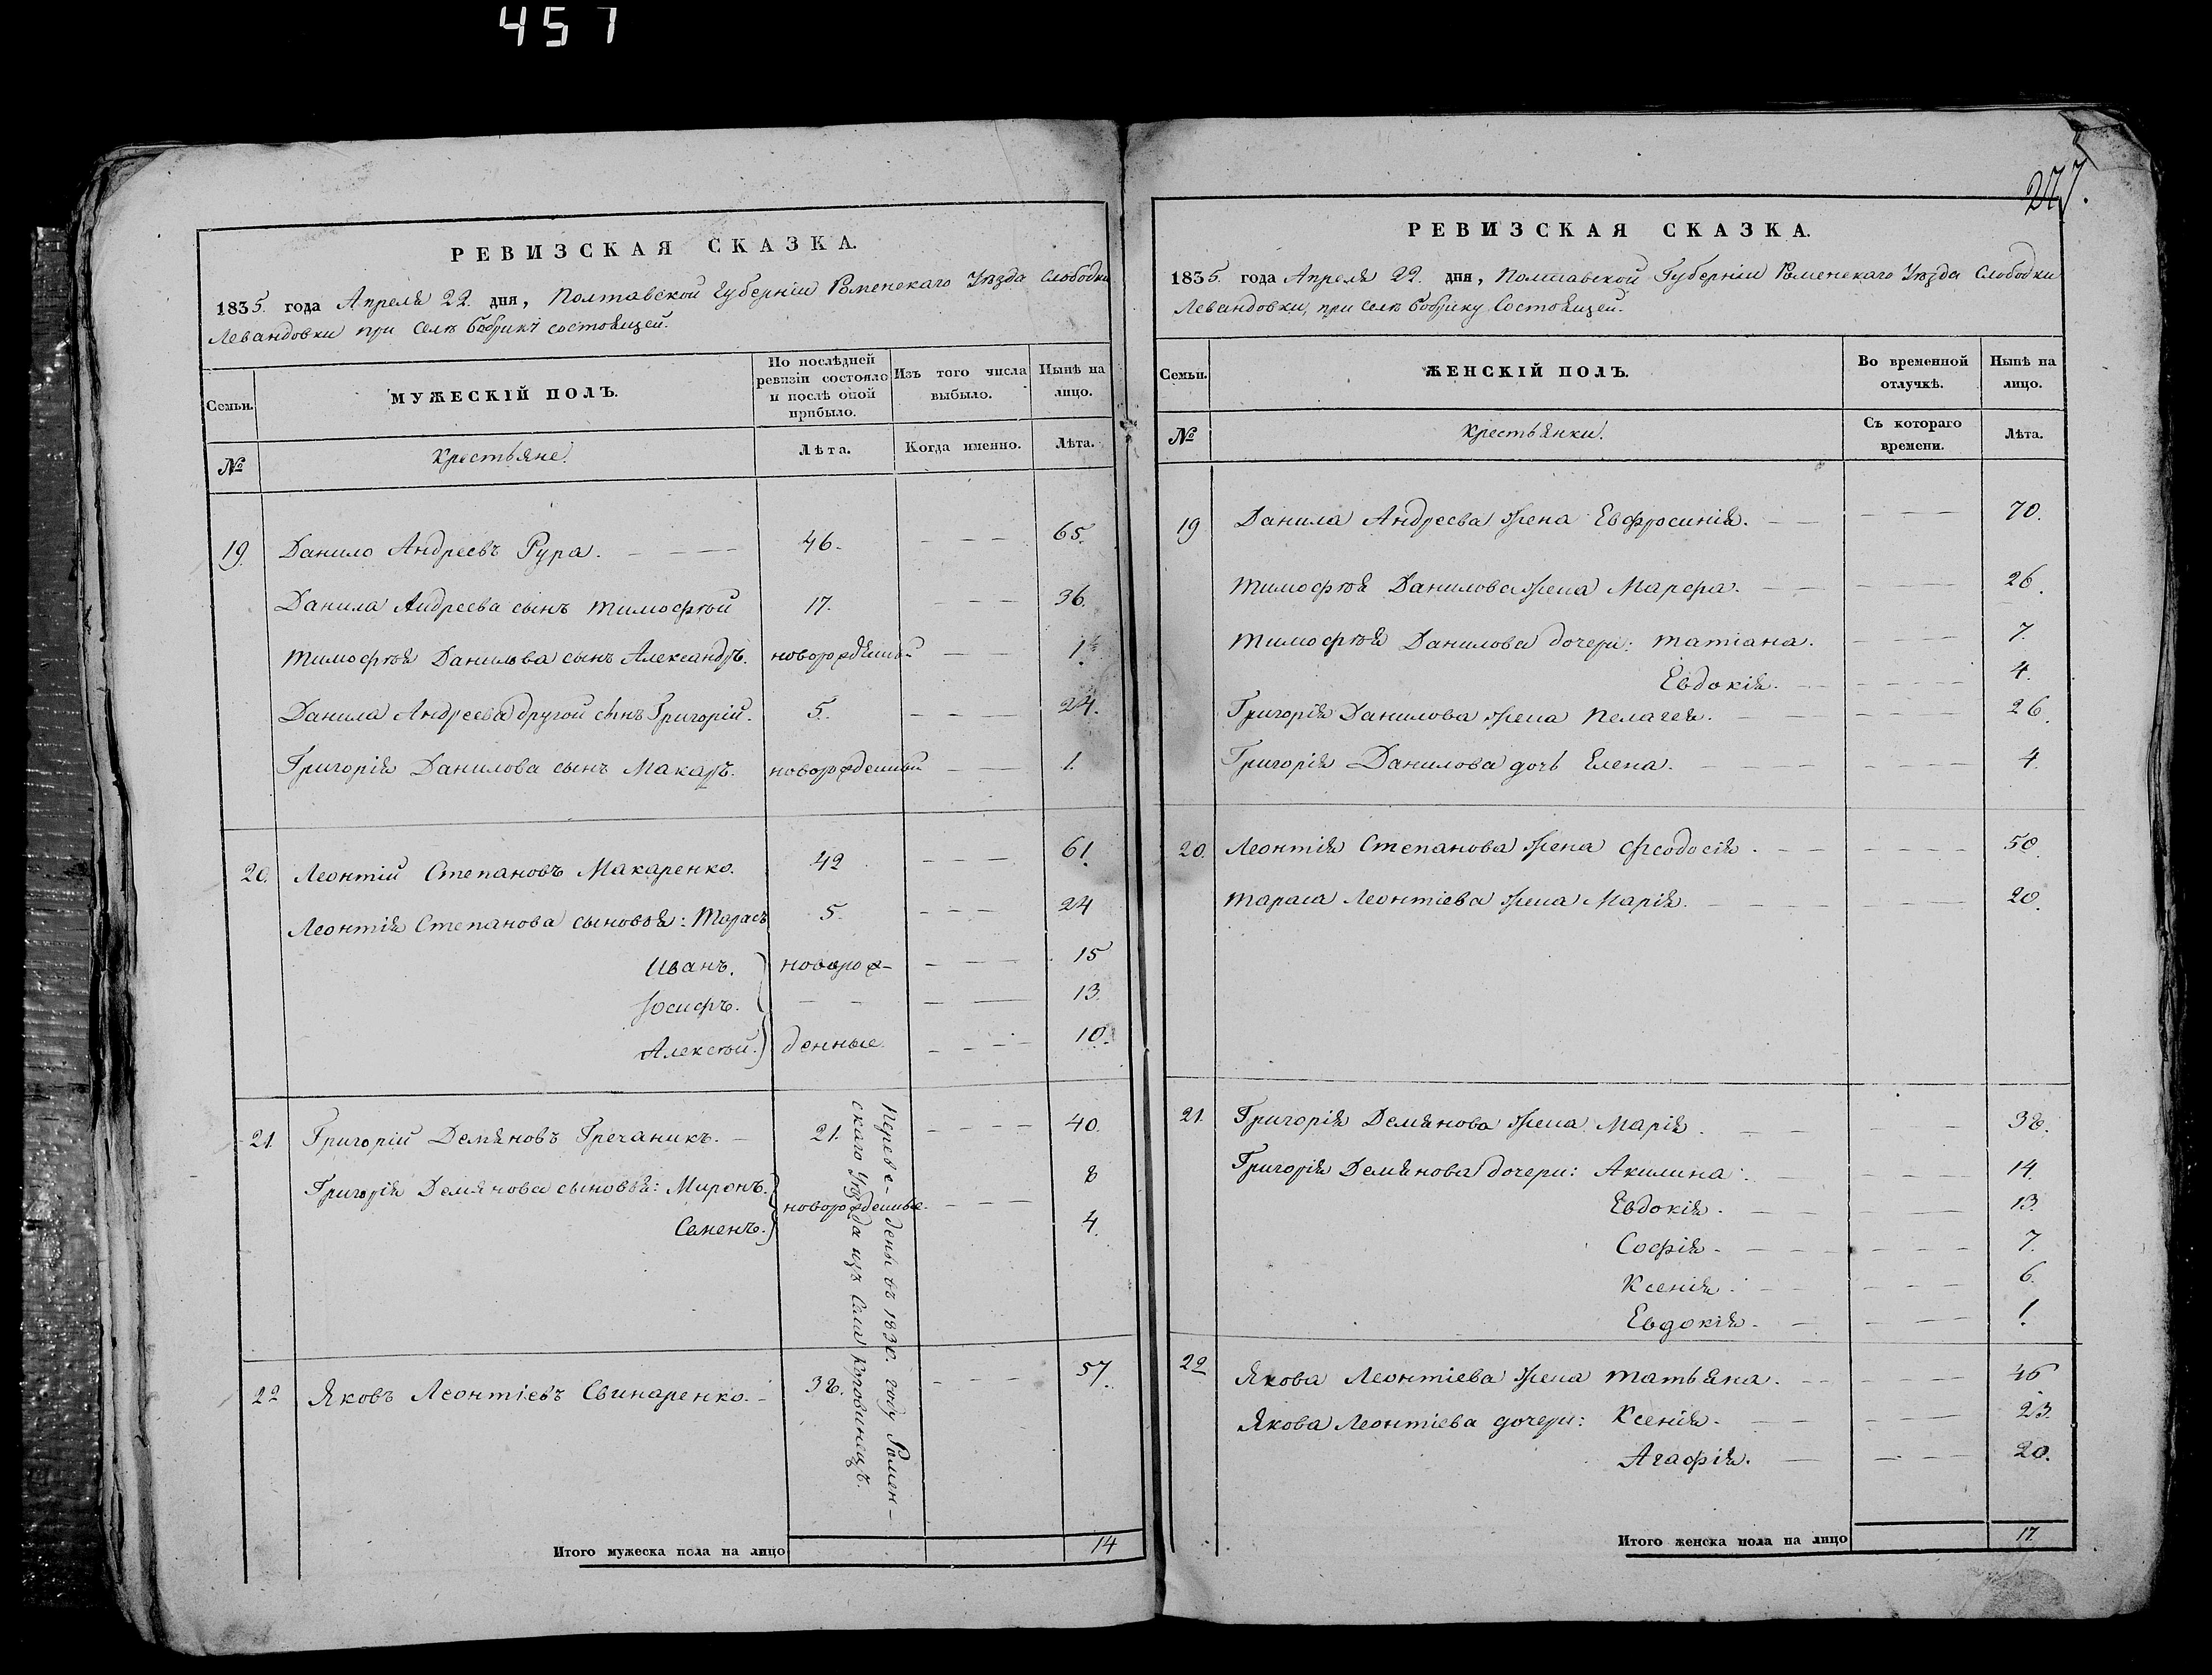 457
277.
РЕВИЗСКАЯ СКАЗКА.
1835. года Апреля 22. дня, Полтавской Губерніи Роменскаго Уѣзда Слободки
Левандовки при Селѣ Бобрикѣ состоящей.
Семьи. МУЖЕСКІЙ ПОЛЪ. По послѣдней ревизіи состояло и послѣ оной прибыло. Изъ того числа выбыло. Нынѣ на лицо.
№ Крестьяне. Лѣта. Когда именно. Лѣта.
19. Данило Андреевъ Рура. 46. 65.
Данила Андреева сынъ Тимофѣй 17. 36.
Тимофѣя Данилова сынъ Александръ. новорожденный 1½
Данила Андреева другой сынъ Григорій. 5. 24.
Григорія Данилова сынъ Макаръ. новорожденный 1.
20. Леонтій Степановъ Макаренко. 42 61.
Леонтія Степанова сыновья: Тарасъ 5. 24
Иванъ. новорож- 15
Іосифъ. 13.
Алексѣй. денные. 10.
21. Григорій Демяновъ Гречаникъ. 21. 40.
Григорія Демянова сыновья: Миронъ. новорожденные. 8
Семенъ. 4.
22 Яковъ Леонтіевъ Свинаренко. 38. 57.
Переве-дены въ 1830. году Ромен-
скаго Уѣзда изъ Села Коровинецъ.
Итого мужеска пола на лицо 14
РЕВИЗСКАЯ СКАЗКА.
1835. года Апреля 22. дня, Полтавской Губерніи Роменскаго Уѣзда Слободки
Левандовки, при Селѣ Бобрику Состоящей.
Семьи. ЖЕНСКІЙ ПОЛЪ. Во временной отлучкѣ. Нынѣ на лицо.
№ Крестьянки. Съ котораго времени. Лѣта.
19 Данила Андреева жена Евфросинія. 70.
Тимофѣя Данилова жена Марфа. 26.
Тимофѣя Данилова дочери: Татіана. 7.
Евдокія. 4.
Григорія Данилова жена Пелагея. 26.
Григорія Данилова дочь Елена. 4.
20. Леонтія Степанова жена Феодосія. 50.
Тараса Леонтіева жена Марія. 20.
21. Григорія Демянова жена Марія. 38.
Григорія Демянова дочери: Акилина. 14.
Евдокія. 13.
Софія. 7.
Ксенія. 6.
Евдокія. 1.
22 Якова Леонтіева жена Татьяна. 46
Якова Леонтіева дочери: Ксенія. 23.
Агафія. 20.
Итого женска пола на лицо 17.